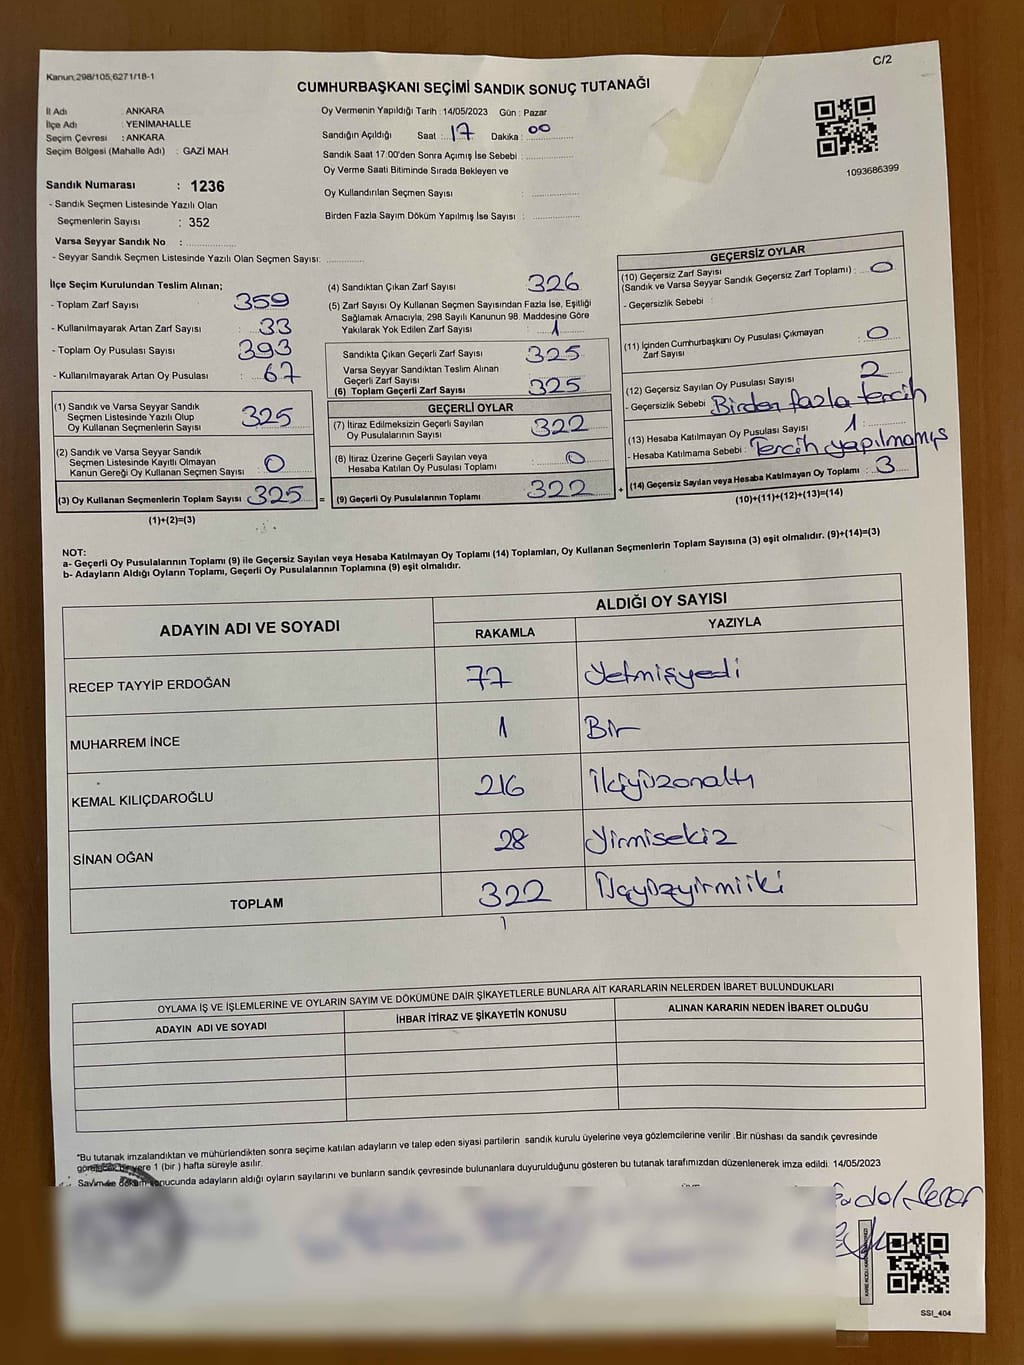 Kanun;298/105;6271/18-1
C/2
CUMHURBAŞKANI SEÇİMİ SANDIK SONUÇ TUTANAĞI
İl Adı : ANKARA
İlçe Adı : YENİMAHALLE
Seçim Çevresi : ANKARA
Seçim Bölgesi (Mahalle Adı) : GAZİ MAH.
Sandık Numarası : 1236
- Sandık Seçmen Listesinde Yazılı Olan
Seçmenlerin Sayısı : 352
Varsa Seyyar Sandık No :
- Seyyar Sandık Seçmen Listesinde Yazılı Olan Seçmen Sayısı:
Oy Vermenin Yapıldığı Tarih : 14/05/2023 Gün : Pazar
Sandığın Açıldığı Saat : 17 Dakika : 00
Sandık Saat 17:00'den Sonra Açımış İse Sebebi :
Oy Verme Saati Bitiminde Sırada Bekleyen ve
Oy Kullandırılan Seçmen Sayısı :
Birden Fazla Sayım Döküm Yapılmış İse Sayısı :
1093686399
İlçe Seçim Kurulundan Teslim Alınan;
- Toplam Zarf Sayısı : 359
- Kullanılmayarak Artan Zarf Sayısı : 33
- Toplam Oy Pusulası Sayısı : 393
- Kullanılmayarak Artan Oy Pusulası : 67
(1) Sandık ve Varsa Seyyar Sandık
Seçmen Listesinde Yazılı Olup
Oy Kullanan Seçmen Sayısı : 325
(2) Sandık ve Varsa Seyyar Sandık
Seçmen Listesinde Kayıtlı Olmayan
Kanun Gereği Oy Kullanan Seçmen Sayısı : 0
(3) Oy Kullanan Seçmenlerin Toplam Sayısı : 325 =
(1)+(2)=(3)
(4) Sandıktan Çıkan Zarf Sayısı : 326
(5) Zarf Sayısı Oy Kullanan Seçmen Sayısından Fazla İse, Eşitliği
Sağlamak Amacıyla, 298 Sayılı Kanunun 98. Maddesine Göre
Yakılarak Yok Edilen Zarf Sayısı : 1
Sandıkta Çıkan Geçerli Zarf Sayısı : 325
Varsa Seyyar Sandıktan Teslim Alınan
Geçerli Zarf Sayısı :
(6) Toplam Geçerli Zarf Sayısı : 325
GEÇERLİ OYLAR
(7) İtiraz Edilmeksizin Geçerli Sayılan
Oy Pusulalarının Sayısı : 322
(8) İtiraz Üzerine Geçerli Sayılan veya
Hesaba Katılan Oy Pusulası Toplamı : 0
(9) Geçerli Oy Pusulalarının Toplamı : 322 +
GEÇERSİZ OYLAR
(10) Geçersiz Zarf Sayısı
(Sandık ve Varsa Seyyar Sandık Geçersiz Zarf Toplamı) : 0
- Geçersizlik Sebebi :
(11) İçinden Cumhurbaşkanı Oy Pusulası Çıkmayan
Zarf Sayısı : 0
(12) Geçersiz Sayılan Oy Pusulası Sayısı : 2
- Geçersizlik Sebebi : Birden fazla tercih
(13) Hesaba Katılmayan Oy Pusulası Sayısı : 1
- Hesaba Katılmama Sebebi : Tercih yapılmamış
(14) Geçersiz Sayılan veya Hesaba Katılmayan Oy Toplamı : 3
(10)+(11)+(12)+(13)=(14)
NOT:
a- Geçerli Oy Pusulalarının Toplamı (9) ile Geçersiz Sayılan veya Hesaba Katılmayan Oy Toplamı (14) Toplamları, Oy Kullanan Seçmenlerin Toplam Sayısına (3) eşit olmalıdır. (9)+(14)=(3)
b- Adayların Aldığı Oyların Toplamı, Geçerli Oy Pusulalarının Toplamına (9) eşit olmalıdır.
ADAYIN ADI VE SOYADI
ALDIĞI OY SAYISI
RAKAMLA YAZIYLA
RECEP TAYYİP ERDOĞAN 77 Yetmişyedi
MUHARREM İNCE 1 Bir
KEMAL KILIÇDAROĞLU 216 İkiyüzonaltı
SİNAN OĞAN 28 Yirmisekiz
TOPLAM 322 Üçyüzyirmiiki
OYLAMA İŞ VE İŞLEMLERİNE VE OYLARIN SAYIM VE DÖKÜMÜNE DAİR ŞİKAYETLERLE BUNLARA AİT KARARLARIN NELERDEN İBARET BULUNDUKLARI
ADAYIN ADI VE SOYADI İHBAR İTİRAZ VE ŞİKAYETİN KONUSU ALINAN KARARIN NEDEN İBARET OLDUĞU
"Bu tutanak imzalandıktan ve mühürlendikten sonra seçime katılan adayların ve talep eden siyasi partilerin sandık kurulu üyelerine veya gözlemcilerine verilir .Bir nüshası da sandık çevresinde
görülecek bir yere 1 (bir ) hafta süreyle asılır.
Sayım ve döküm sonucunda adayların aldığı oyların sayılarını ve bunların sandık çevresinde bulunanlara duyurulduğunu gösteren bu tutanak tarafımızdan düzenlenerek imza edildi. 14/05/2023
SSI_404